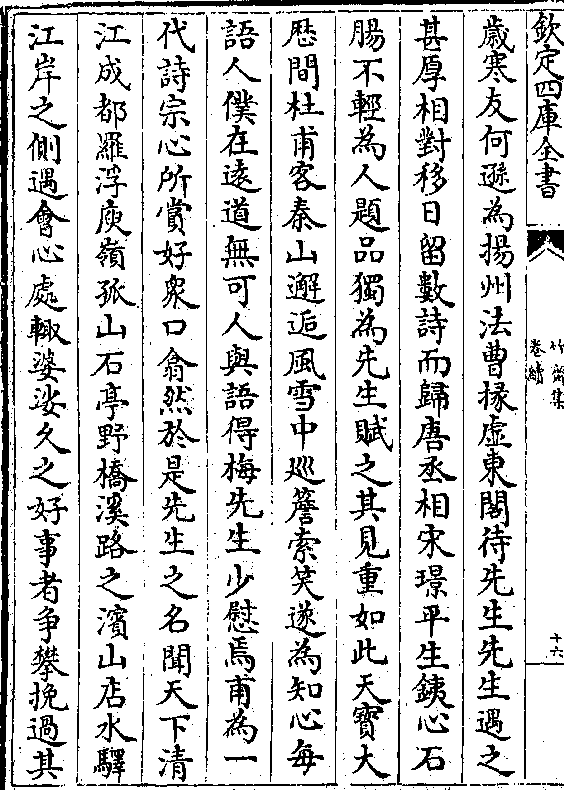 欽定四庫全書
竹齋集
卷續
十六
歲寒友何遜為揚州法曹掾虛東閣待先生先生遇之
甚厚相對移日留數詩而歸唐丞相宋璟平生鐵心石
腸不輕為人題品獨為先生賦之其見重如此天寶大
厯間杜甫客秦山邂逅風雪中巡簷索笑遂為知心每
語人僕在遠道無可人與語得梅先生少慰焉甫為一
代詩宗心所賞好衆口翕然於是先生之名聞天下清
江成都羅浮庾嶺孤山石亭野橋溪路之濱山店水驛
江岸之側遇會心處輙婆娑久之好事者争攀挽過其